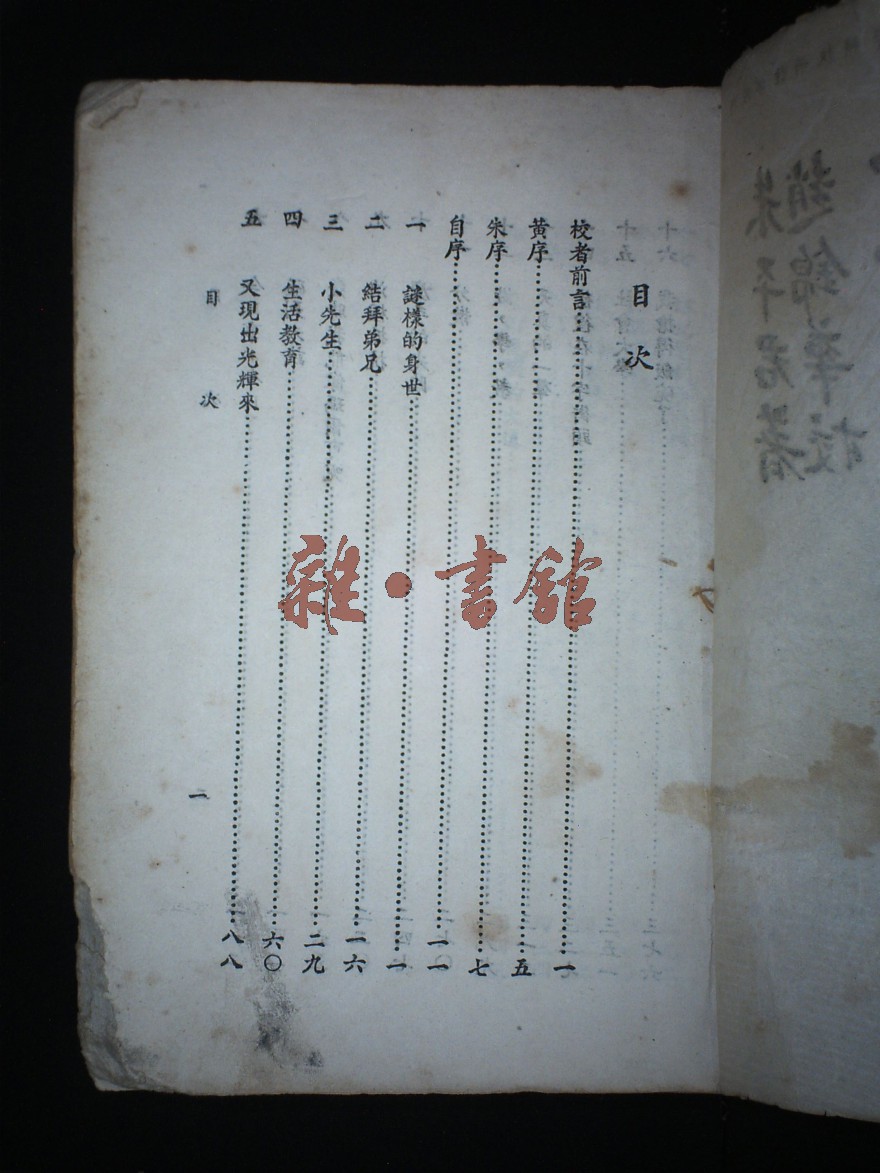 目次
校者前言……一
黃序……五
朱序……七
自序……一一
一 謎樣的身世……一
二 結拜弟兄……一六
三 小先生……二九
四 生活教育……六〇
五 又現出光輝來……八八
目次
雜·書館